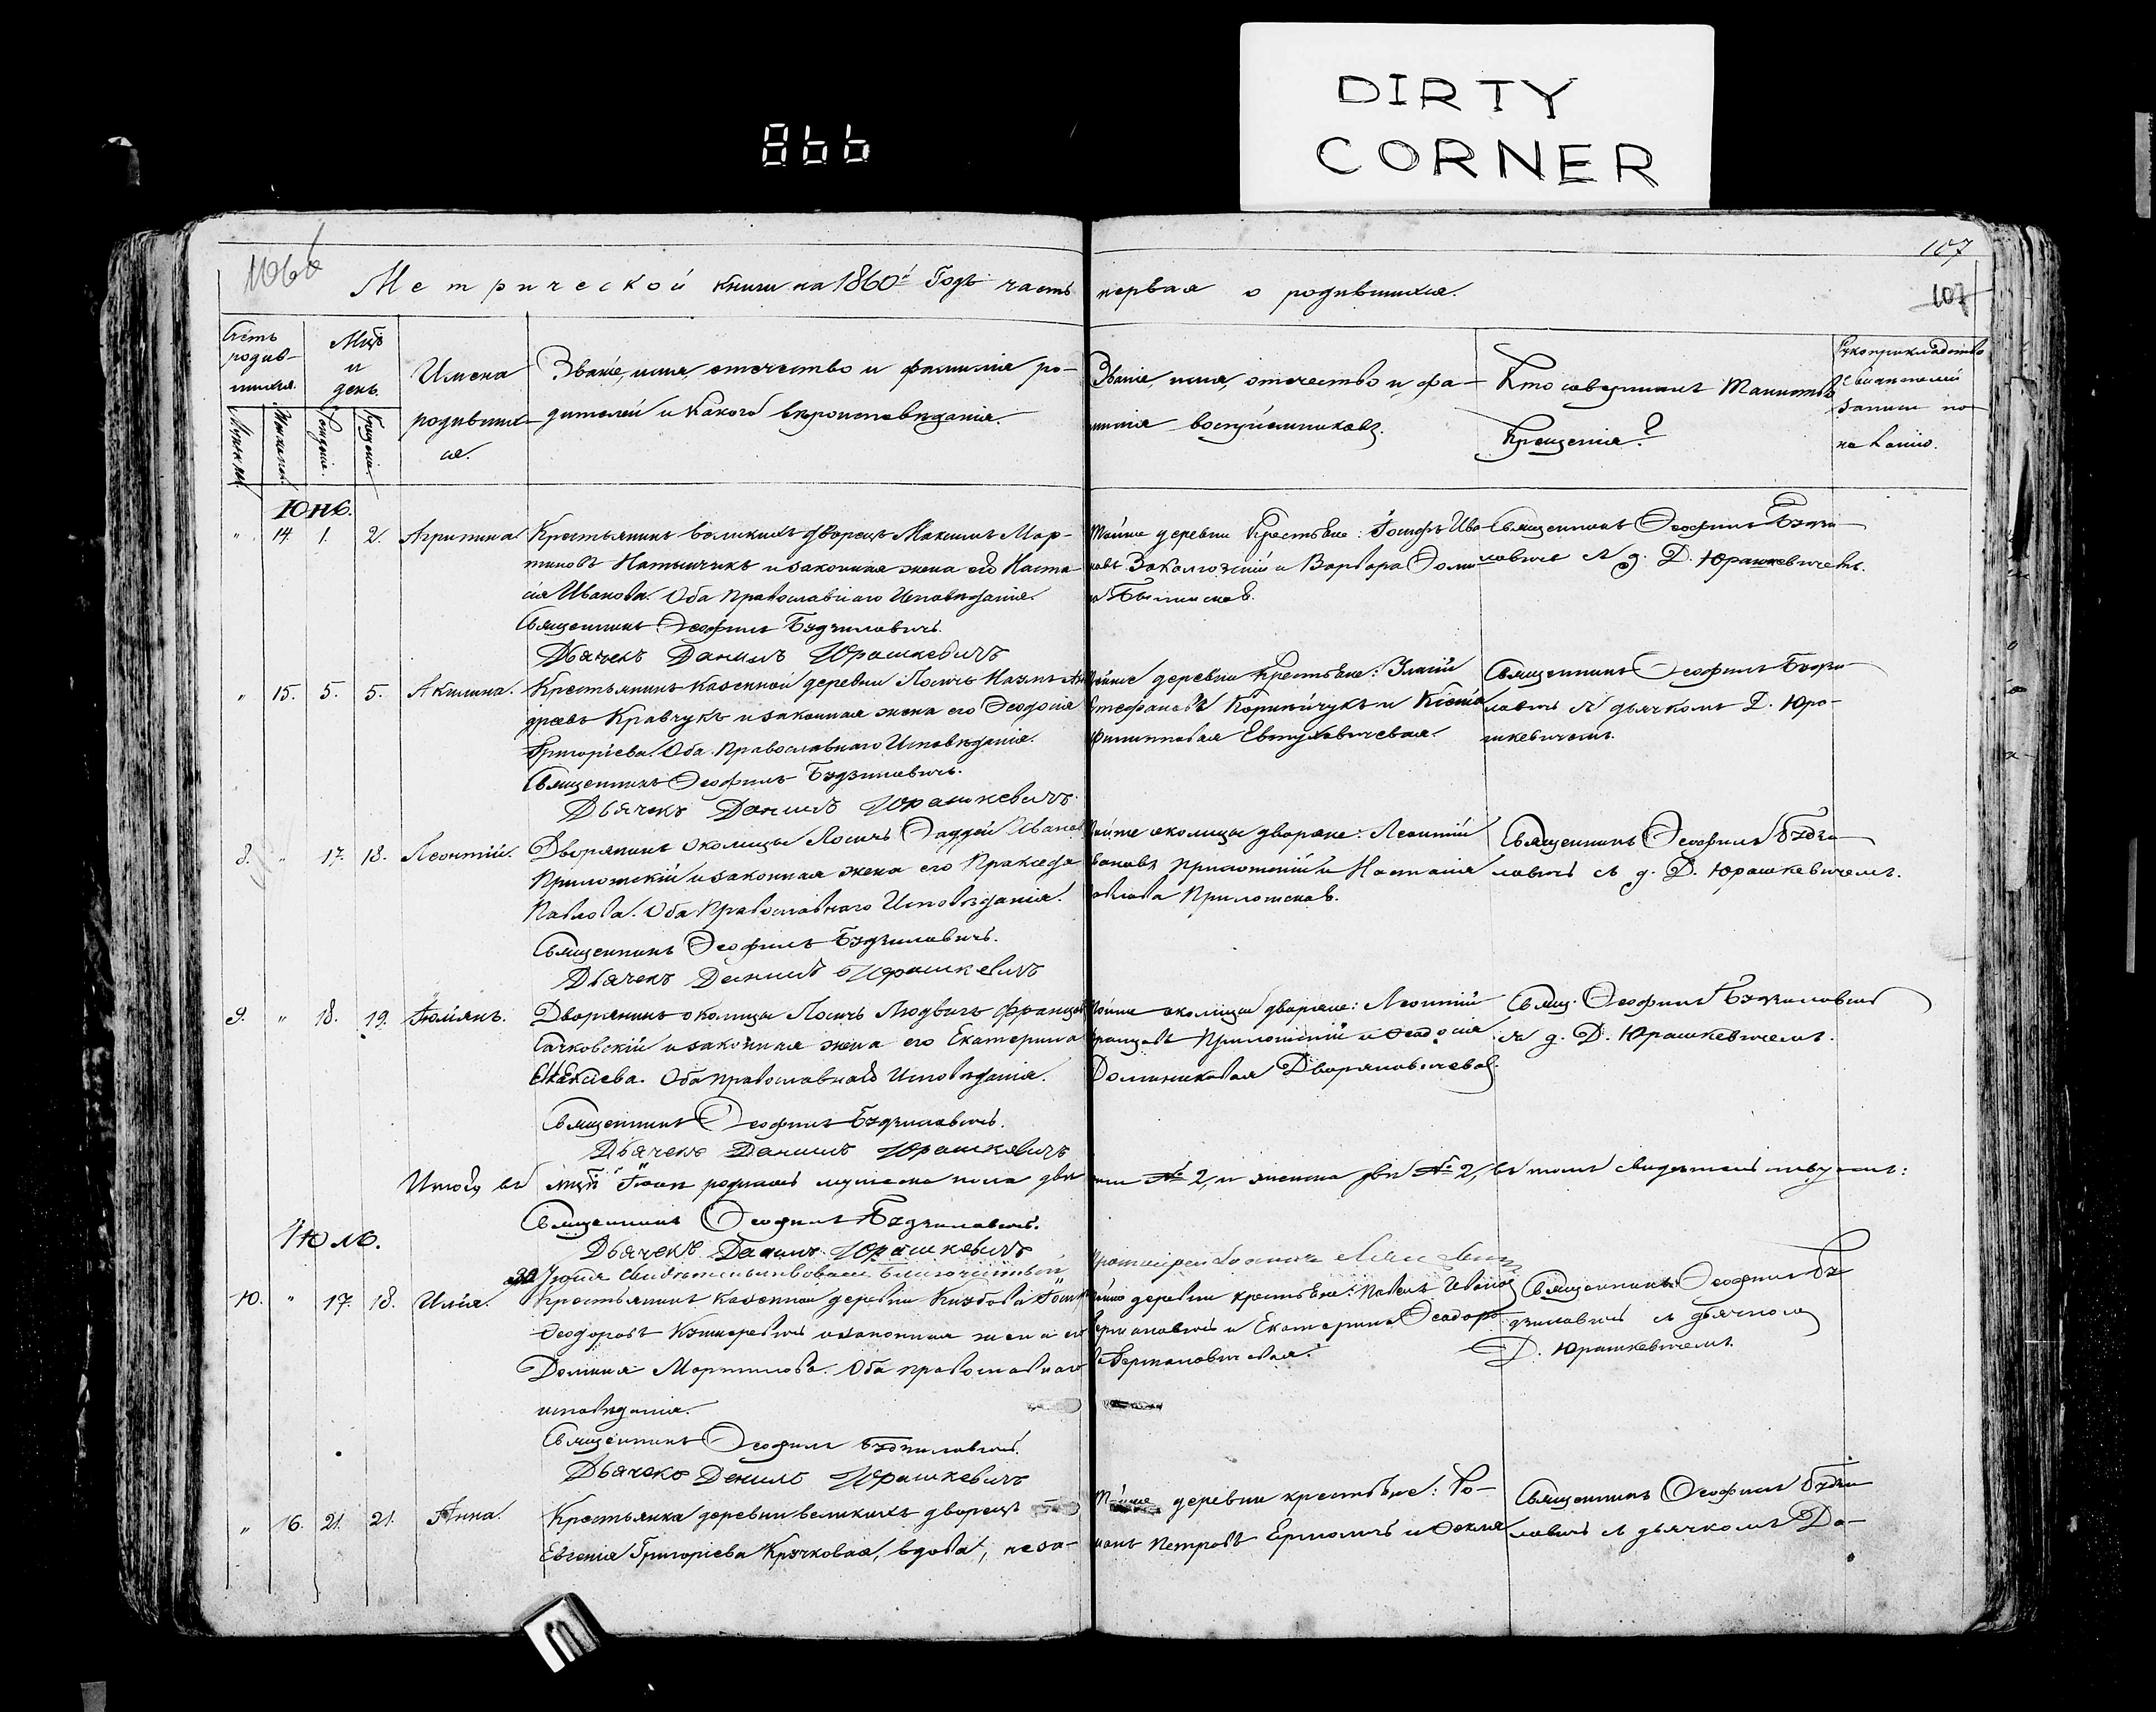 DIRTY
CORNER
866
107
107
Метрической книги на 1860й Годъ часть первая о родившихся.
Счетъ родив-шихся.
Мцъ и день.
Имена родившихся.
Званіе, имя, отечество и фамилія ро-
дителей и какого вѣроисповѣданія.
Званіе, имя, отечество и фа-
милія воспріемниковъ.
Кто совершалъ Таинство
Крещенія?
Рукоприкладство
свидѣтелей
записи по
желанію.
Юнь.
" 14. 1. 2. Агрипина
Крестьянинъ великихъ дворецъ Максимъ Мар-
тиновъ и законная жена его Наста-
сія Иванова. Оба Православнаго Исповѣданія.
Священникъ Ѳеофилъ Будзиловичъ.
Дьячекъ Данилъ Юрашкевичъ
Тойже деревни Крестьяне: Іосифъ Ива-
новъ и Варвара
Священникъ Ѳеофилъ Будзи-
ловичъ съ д. Д. Юрашкевичемъ.
" 15. 5. 5. Акилина.
Крестьянинъ казенной деревни Лосичъ Ан-
дреевъ Кравчукъ и законная жена его Ѳеодосія
Григоріева. Оба Православнаго Исповѣданія.
Священникъ Ѳеофилъ Будзиловичъ.
Дьячекъ Данилъ Юрашкевичъ.
Тойже деревни Крестьяне:
Стефановъ Корнейчукъ и
Филиповая Евтуховичевая.
Священникъ Ѳеофилъ Будзи-
ловичъ съ дьячкомъ Д. Юра-
шкевичемъ.
8. " 17. 18. Леонтій.
Дворянинъ околицы Лосичъ Ѳаддей Иванов
Прилотскій и законная жена его Пракседа
Павлова. Оба Православнаго Исповѣданія.
Священникъ Ѳеофилъ Будзиловичъ.
Дьячекъ Данилъ Юрашкевичъ
Тойже околицы дворяне: Леонтій
Ивановъ Прилотскій и Настасія
Павлова
Священникъ Ѳеофилъ Будзи-
ловичъ съ д. Д. Юрашкевичемъ.
9. " 18. 19. Іюліянъ.
Дворянинъ околицы Лосичъ Людвигъ Францов
Сачковскій и законная жена его Екатерина
Оба православнаго Исповѣданія.
Священникъ Ѳеофилъ Будзиловичъ.
Дьячекъ Данилъ Юрашкевичъ
Тойже околицы дворяне: Леонтій
Прилотскій и Ѳеодосія
Доминиковая Дворяновичева.
Свящ. Ѳеофилъ Будзиловичъ
съ д. Д. Юрашкевичемъ.
Итого въ мцѣ Іюнѣ родилось мужеска пола двое № 2, и женска двѣ № 2, въ томъ свидѣтельствуемъ:
Священникъ Ѳеофилъ Будзиловичъ.
Дьячекъ Данилъ Юрашкевичъ
30 Іюня Свидѣтельствовалъ Благочинный Протоіерей
Июль.
10. " 17. 18. Илія.
Крестьянинъ казенной деревни
Ѳеодоровъ и законная жена его
Домния Мартинова. Оба православнаго
исповѣданія.
Священникъ Ѳеофилъ Будзиловичъ.
Дьячекъ Данилъ Юрашкевичъ
деревни крестьяне: Павелъ Иванов
Германовичъ и Екатерина Ѳеодоро-
ва Германовичевая.
Священникъ Ѳеофилъ Бу-
дзиловичъ съ дьячкомъ
Д. Юрашкевичемъ.
" 16. 21. 21. Анна.
Крестьянка деревни великихъ дворецъ
Евгенія Григоріева Кручковая, вдова, неза-
Тойже деревни крестьяне: Ро-
манъ Петровъ Ермоличъ и Ѳекла
Священникъ Ѳеофилъ Будзи-
ловичъ съ дьячкомъ Да-